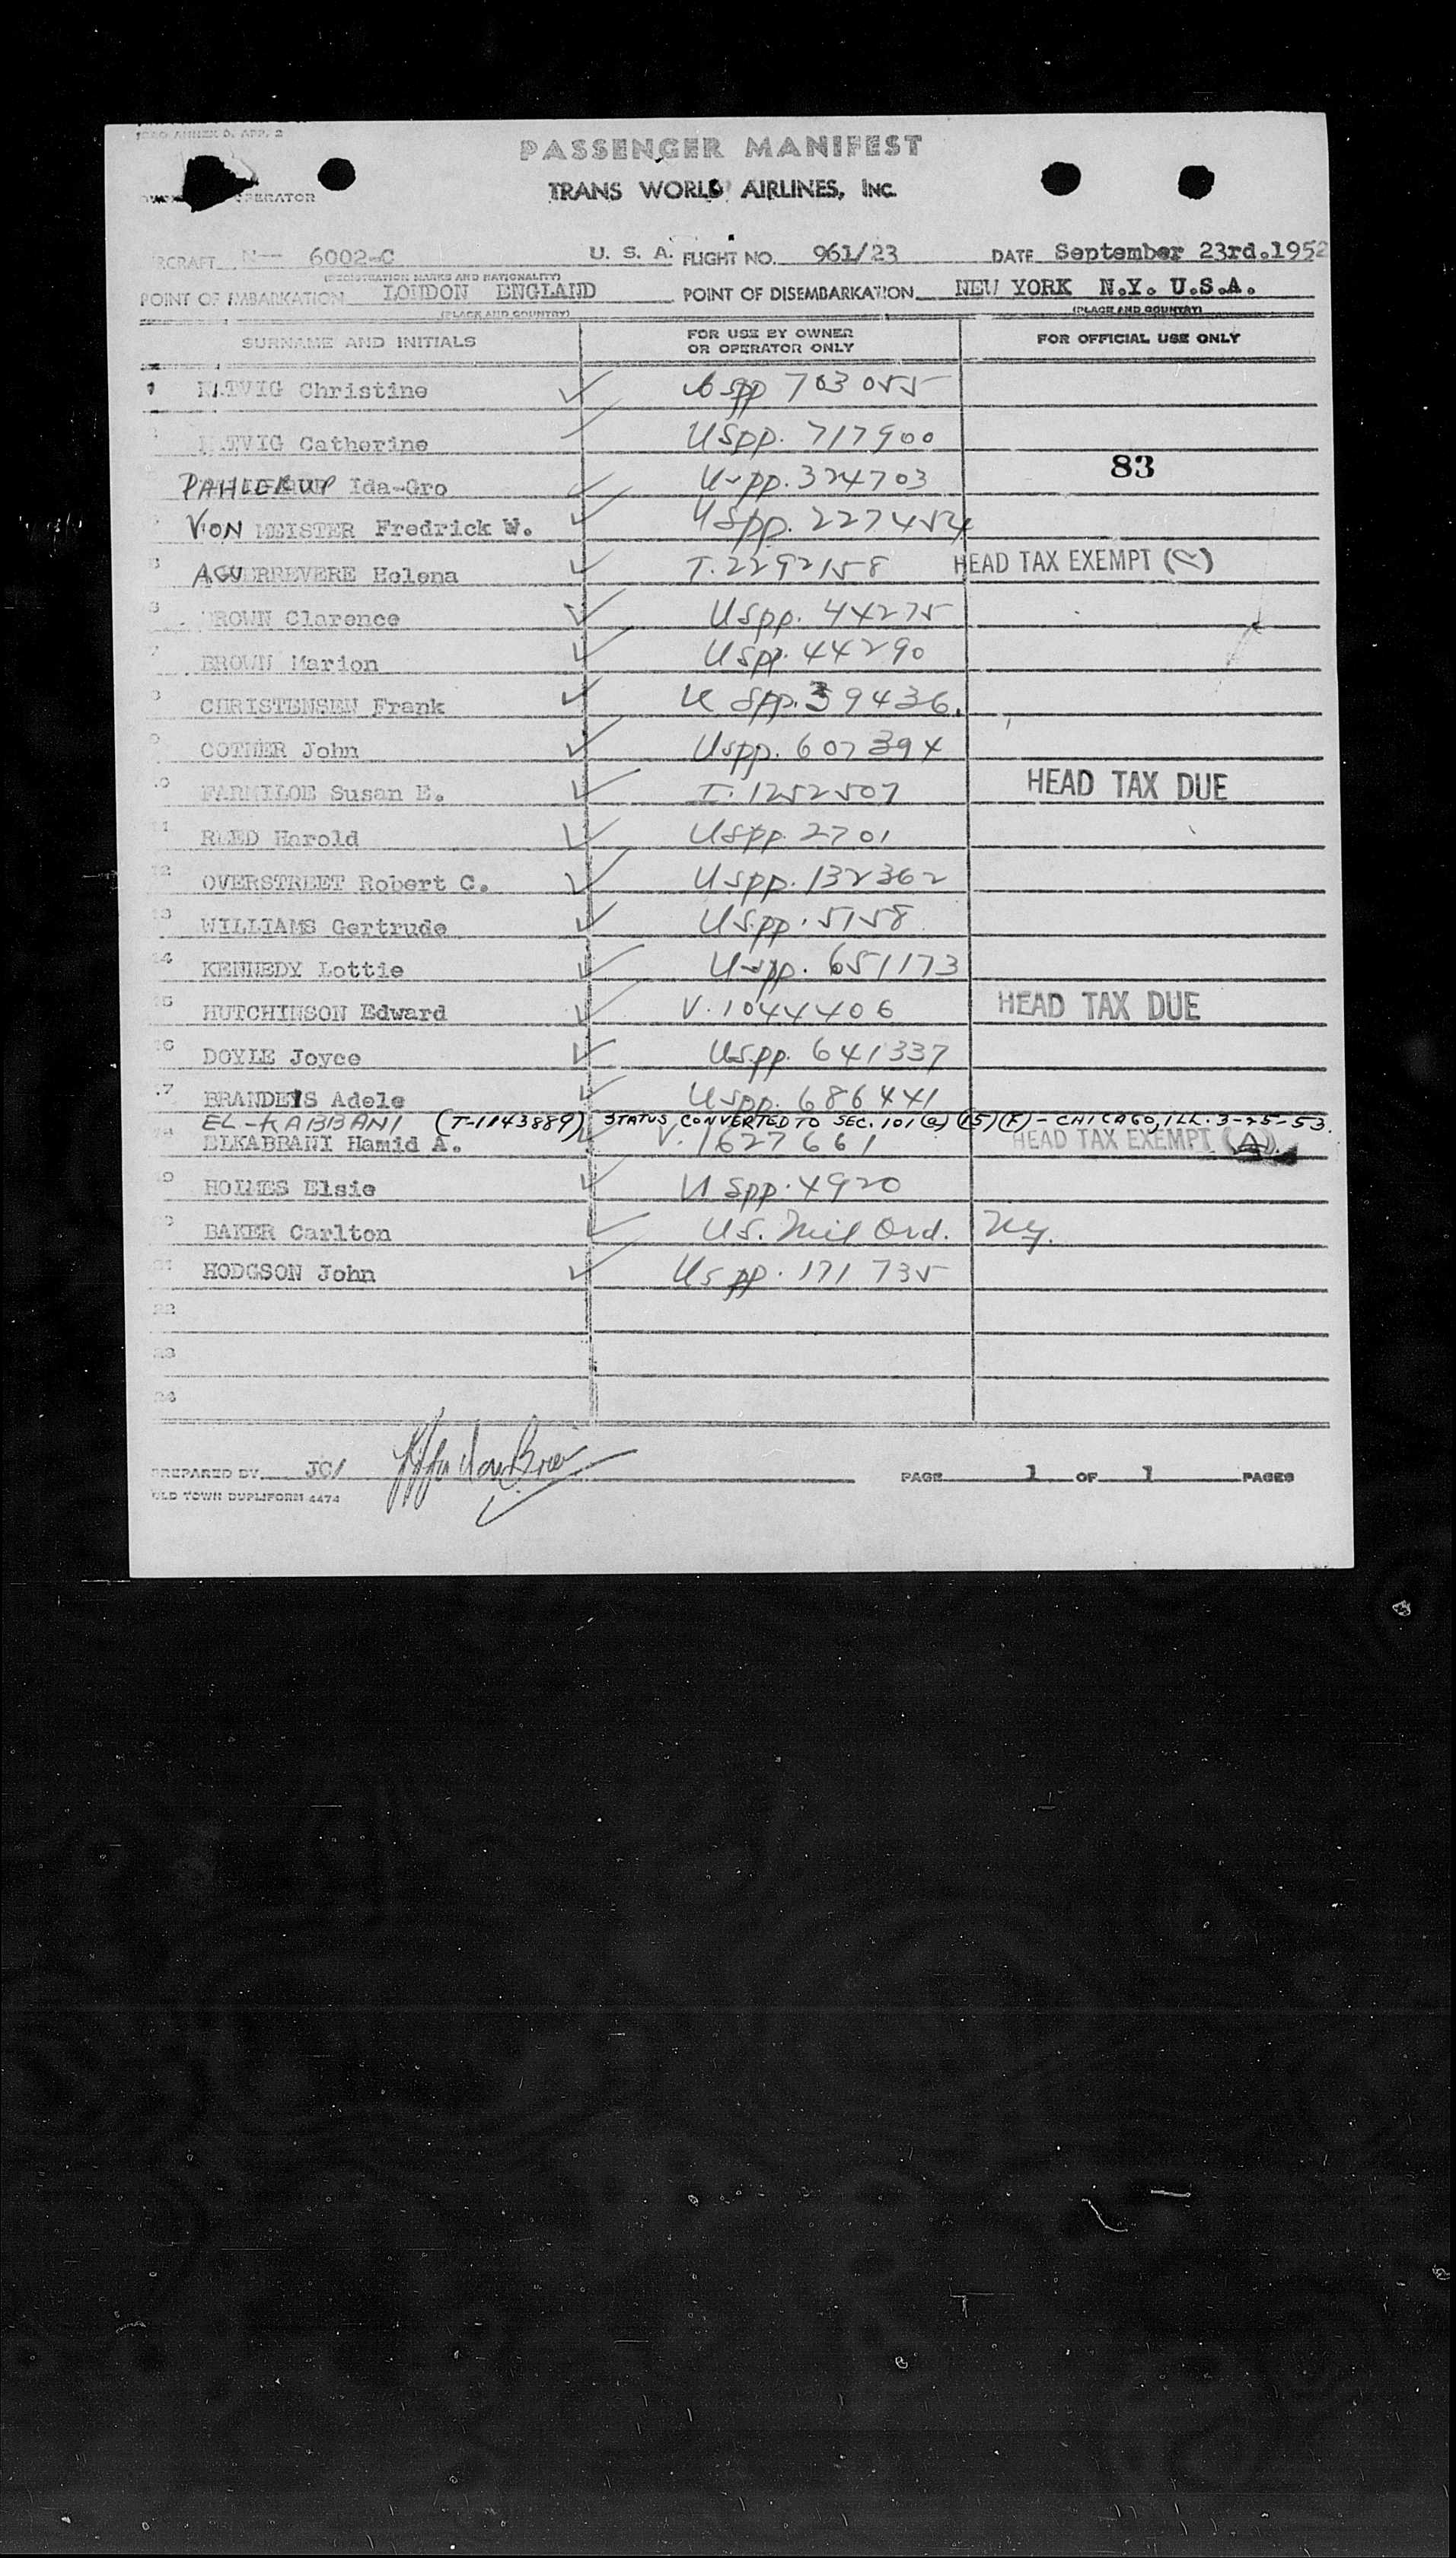 ICAO ANNEX 9, APP. 2
PASSENGER MANIFEST
OPERATOR
TRANS WORLD AIRLINES, INC.
AIRCRAFT N-- 6002-C U. S. A. FLIGHT NO. 961/23 DATE September 23rd.1952
(REGISTRATION MARKS AND NATIONALITY)
POINT OF EMBARKATION LONDON ENGLAND POINT OF DISEMBARKATION NEW YORK N.Y. U.S.A.
(PLACE AND COUNTRY) (PLACE AND COUNTRY)
SURNAME AND INITIALS FOR USE BY OWNER OR OPERATOR ONLY FOR OFFICIAL USE ONLY
1 Christine USpp 703055
Catherine USpp. 717900
83
Ida-Gro USpp. 324703
VON MEISTER Fredrick W. USpp. 227454
5 AGUERREVERE Helena T. 2292158 HEAD TAX EXEMPT (C)
6 BROWN Clarence USpp. 44275
7 BROWN Marion USpp. 44290
8 CHRISTENSEN Frank USpp. 39436.
9 COTNER John USpp. 607394
10 FARMILOE Susan E. T. 1252507 HEAD TAX DUE
11 REED Harold USpp 2701
12 OVERSTREET Robert C. USpp. 132362
13 WILLIAMS Gertrude USpp. 5158
14 KENNEDY Lottie USpp. 651173
15 HUTCHINSON Edward V. 1044406 HEAD TAX DUE
16 DOYLE Joyce USpp. 641337
17 BRANDEIS Adele USpp. 686441
EL-KABBANI (T-1143889) STATUS CONVERTED TO SEC. 101(a)(15)(F) - CHICAGO, ILL. 3-25-53.
18 ELKABRANI Hamid A. V. 1627661 HEAD TAX EXEMPT (A)
19 HOLMES Elsie USpp. 4920
20 BAKER Carlton US. Mil Ord.
21 HODGSON John USpp. 171735
22
23
24
PREPARED BY JC/ PAGE 1 OF 1 PAGES
OLD TOWN DUPLIFORM 4474